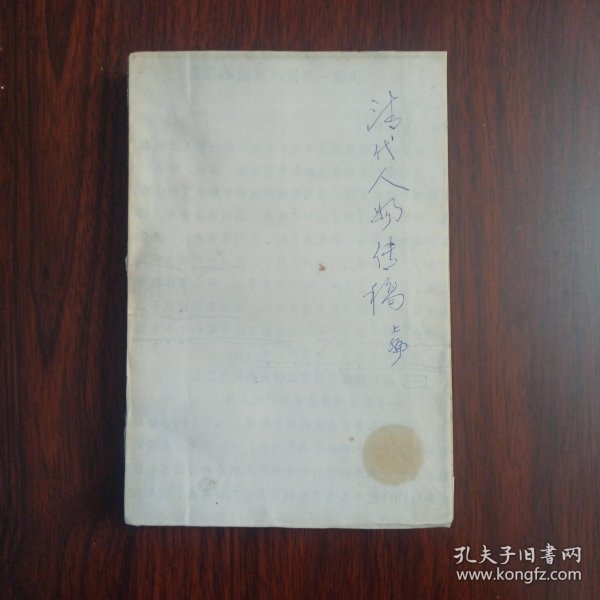 清代人物传稿
上编
孔夫子旧書网
www.kongfz.com